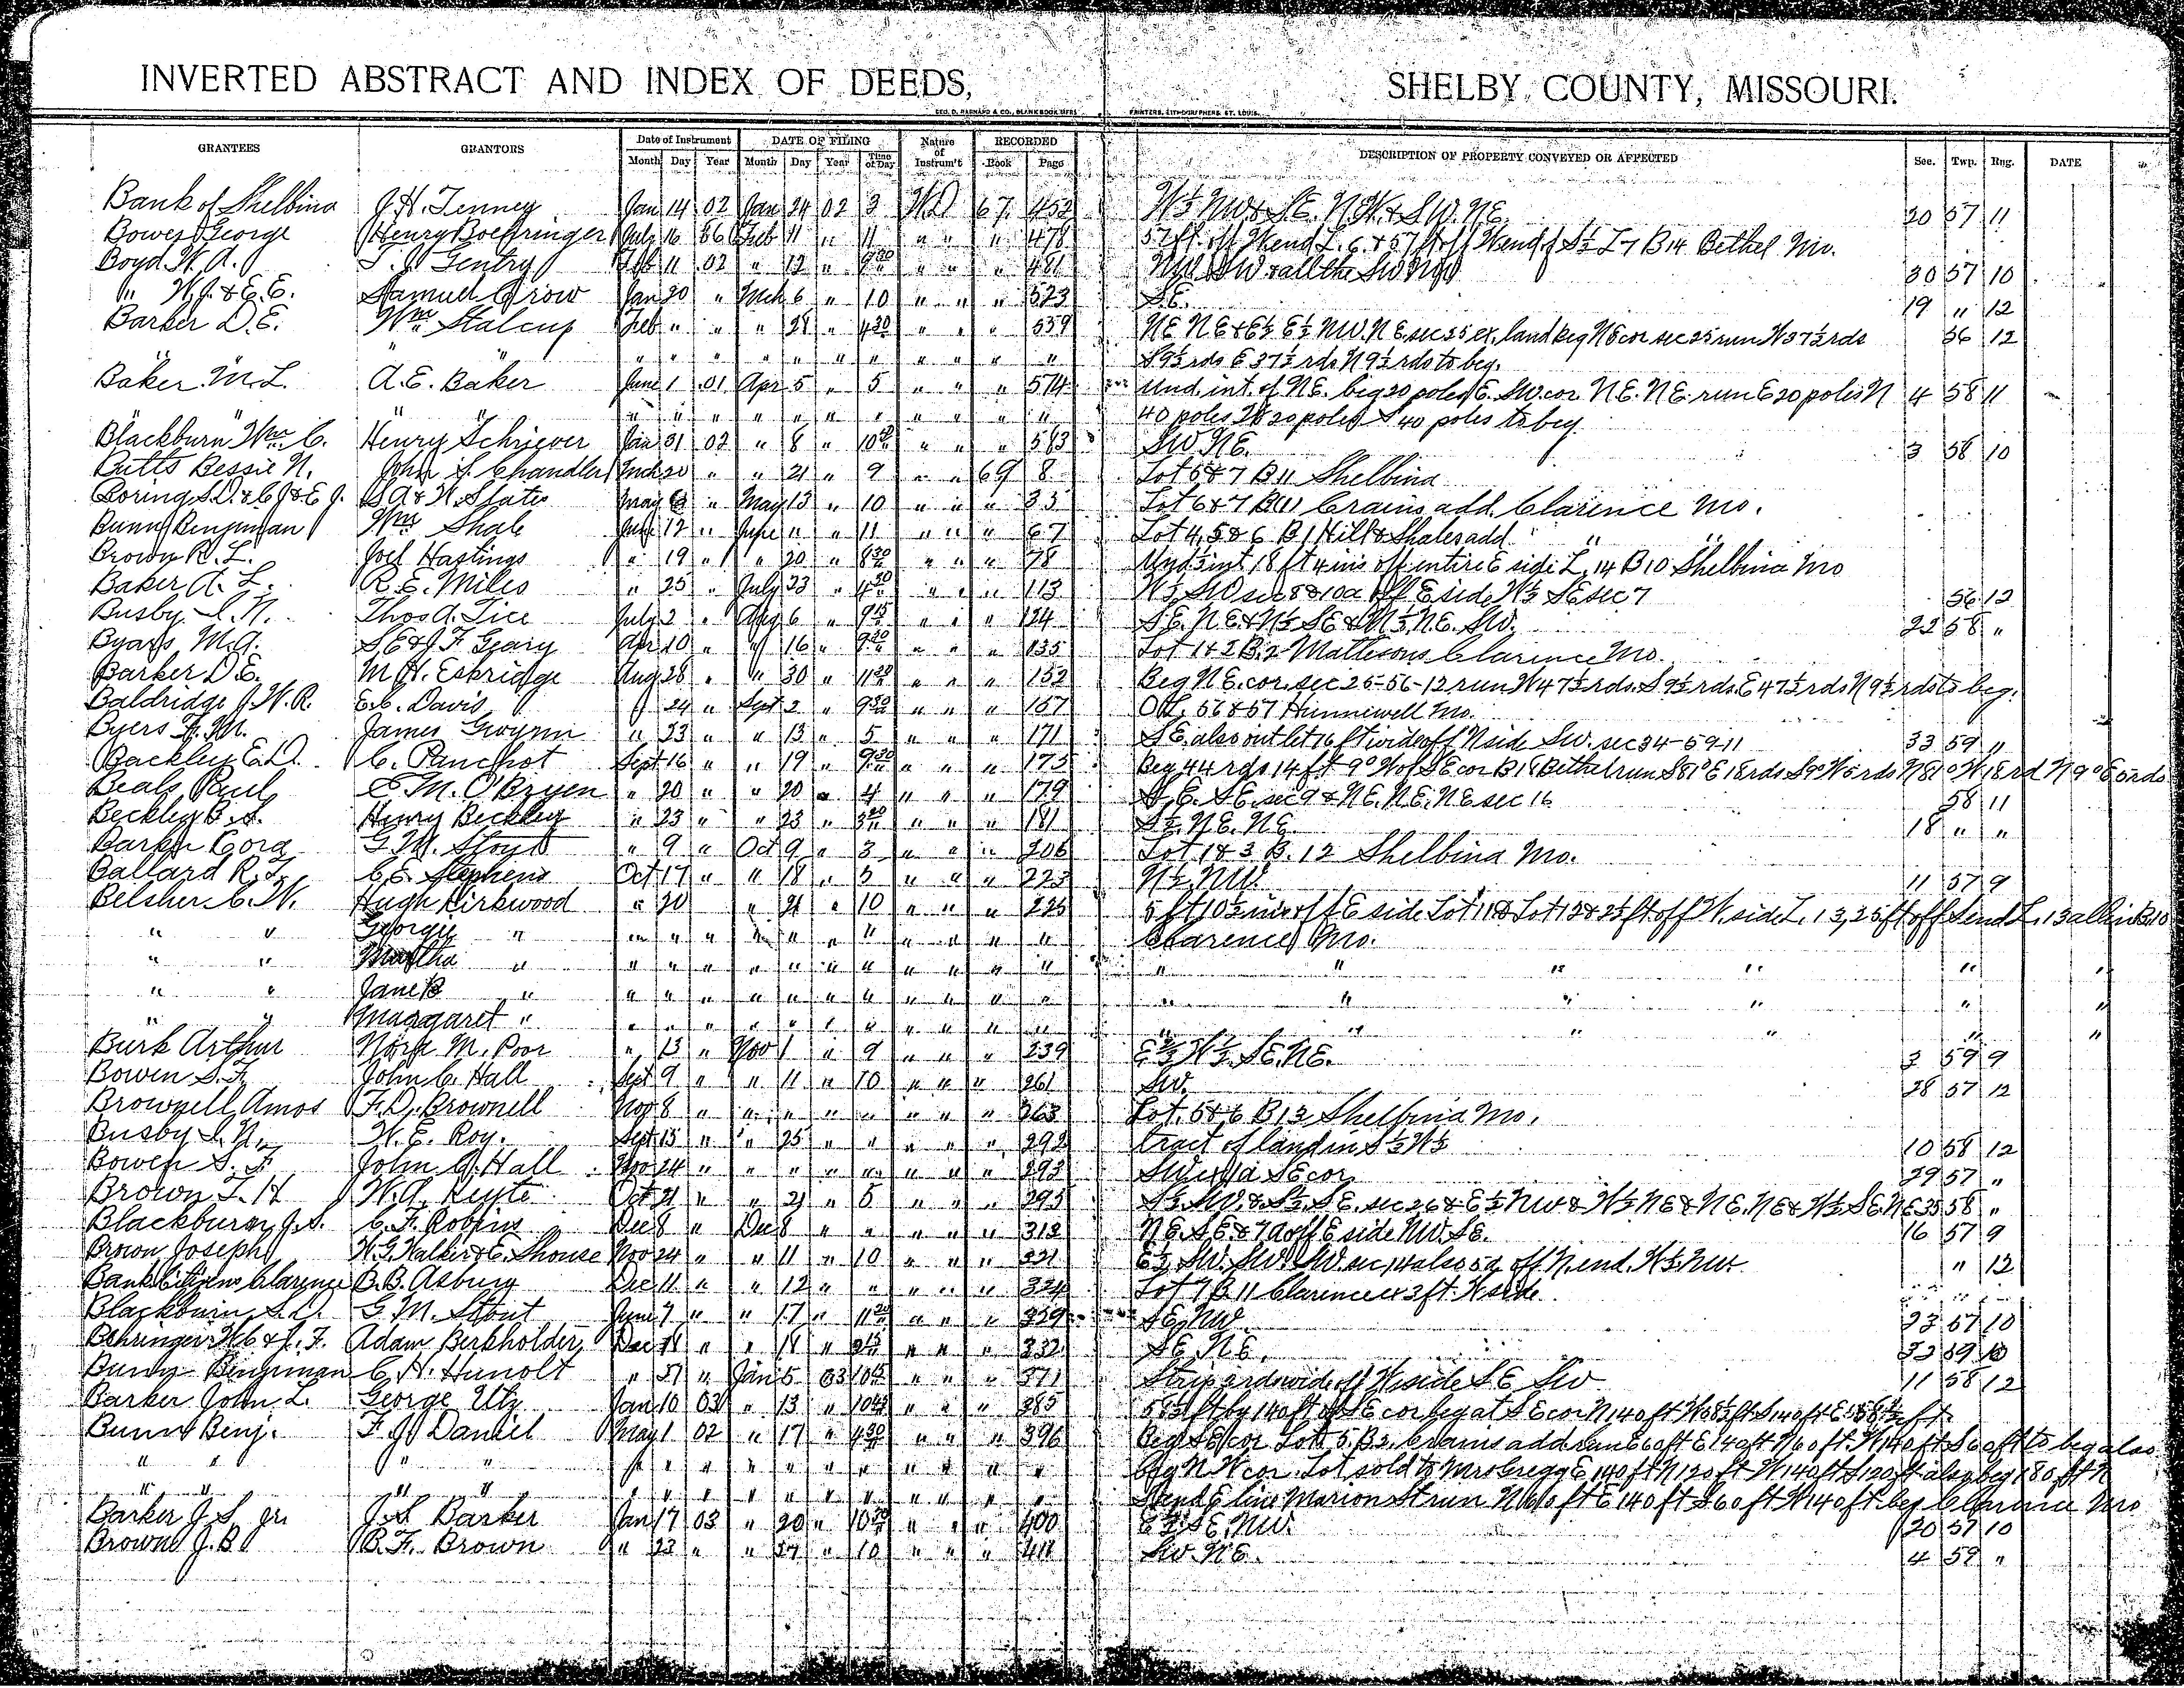 INVERTED ABSTRACT AND INDEX OF DEEDS, SHELBY COUNTY, MISSOURI.
GEO. D. BARNARD & CO., BLANK BOOK MFRS PRINTERS, LITHOGRAPHERS, ST. LOUIS.
GRANTEES GRANTORS Date of Instrument DATE OF FILING Nature of Instrum't RECORDED DESCRIPTION OF PROPERTY CONVEYED OR AFFECTED Sec. Twp. Rng. DATE
Month Day Year Month Day Year Time of Day Book Page
Bank of Shelbina J. H. Tenney Jan 14 02 Jan 24 02 3 WD 67 452 W½ NW & SE. NW & SW. NE. 20 57 11
Bower George Henry Boehringer July 16 86 Feb 11 " 11 " " " 478 57 ft. off W end L. 6 & 57 ft off W end of S½ L 7 B 14 Bethel Mo.
Boyd W. A. Gentry Feb 11 02 " 12 " 9 30 " " " 481 NW SW & all the SW NW 30 57 10
" W. J. & E. E. Samuel Crow Jan 20 " Mch 6 " 10 " " " 523 SE. 19 " 12
Barker D. E. Wm Stalcup Feb " " " 28 " 4 30 " " " 559 NE NE & E½ E½ NW. NE. sec 25 ex. land beg NE cor sec 25 run W 37½ rds 56 12
" " " " " " " " " " " " " " S 9½ rds E 37½ rds N 9½ rds to beg.
Baker M. L. A. E. Baker June 1 01 Apr 5 " 5 " " " 574 Und. int. of NE. beg 20 poles E. SW. cor NE. NE. run E 20 poles N 4 58 11
" " " " " " " " " " " " " 40 poles W 20 poles S 40 poles to beg.
Blackburn Wm C. Henry Schriever Jan 31 02 " 8 " 10 " " " 583 SW. NE. 3 58 10
Butts Bessie N. John S. Chandler Mch 20 " " 21 " 9 " " 69 8 Lot 6 & 7 B 11 Shelbina
Boring S. D. & C. J. & E. J. S. A. & W. States May 6 " May 13 " 10 " " " 35 Lot 6 & 7 B 11 Crains add. Clarence Mo.
Bunn Benjman Wm Shale June 12 " June " " 11 " " " 67 Lot 4, 5 & 6 B 1 Hill & Shales add. " "
Brown R. L. Joel Hastings " 19 " " 20 " 8 30 " " " 78 Und ½ int. 18 ft 4 ins off entire E side L, 14 B 10 Shelbina Mo
Baker A. L. R. E. Miles " 25 " July 23 " 4 30 " " " 113 W½ SW sec 8 & 10a off E side W½ SE sec 7 56 12
Busby I. N. Thos A. Tice July 2 " Aug 6 " 9 15 " " " 124 SE. NE & N½ SE & N½ NE. SW. 22 58 "
Byars M. A. S. E. & J. F. Geary Apr 10 " " 16 " 9 30 " " " 135 Lot 1 & 2 B. 2 Mattesons Clarence Mo.
Barker D. E. M. H. Eskridge Aug 28 " " 30 " 11 30 " " " 152 Beg NE. cor. sec 25-56-12 run W 47½ rds. S 9½ rds. E 47½ rds N 9½ rds to beg.
Baldridge J. W. R. E. C. Davis " 24 " Sept 2 " 9 30 " " " 157 OL. 56 & 57 Hunnewell Mo.
Byers F. M. James Gwynn " 23 " " 13 " 5 " " " 171 SE. also outlet 16 ft wide off N side SW. sec 34-59-11 33 59 11
Backley E. D. C. Panchot Sept 16 " " 19 " 9 30 " " " 175 Beg 44 rds 14 ft 9° W of SE cor B 18 Bethel run S 81° E 18 rds S 9° W 5 rds N 81° W 18 rd N 9° E 5 rds
Beals Paul E. M. O'Bryen " 20 " " 20 " 4 " " " 179 S. E. SE. sec 9 & NE. NE. NE sec 16 58 11
Beckley B. S. Henry Beckley " 23 " " 23 " 3 30 " " " 181 S½ NE. NE. 18 " "
Barker Cora G. M. Stout " 9 " Oct 9 " 3 " " " 206 Lot 1 & 3 B. 12 Shelbina Mo.
Ballard R. L. C. E. Stephens Oct 17 " " 18 " 5 " " " 223 N½ NW. 11 57 9
Belsher C. W. Hugh Kirkwood " 20 " 21 " 10 " " " 225 5 ft 10½ in off E side Lot 11 & Lot 12 & 2½ ft off W. side L. 13, 25 ft off S end L. 13 all in B 10
" " George " " " " " " " " " " " " Clarence Mo.
" " Martha " " " " " " " " " " " " " " " " " "
" " Jane B " " " " " " " " " " " " " " " " " "
" " Maggaret " " " " " " " " " " " " " " " " " "
Burk Arthur Nora M. Poor " 13 " Nov 1 " 9 " " " 239 E½ W½ SE. NE. 3 59 9
Bowen S. F. John C. Hall Sept 9 " " 11 " 10 " " " 261 SW. 28 57 12
Brownell Amos F. D. Brownell Nov 8 " " " " " " " " 263 Lot. 5 & 6 B 13 Shelbina Mo.
Busby I. N. W. E. Roy. Sept 15 " " 25 " " " " " 292 tract of land in S½ W½ 10 58 12
Bowen S. F. John C. Hall Nov 24 " " " " " " " " 293 SW ex 1a SE cor 29 57 "
Brown T. H W. A. Keyte Oct 21 " " 21 " 5 " " " 295 S½ SW. & S½ SE. sec 26 & E½ NW & W½ NE & NE. NE & W½ SE. NE 35 58 "
Blackburn J. S. C. F. Robbins Dec 8 " Dec 8 " " " " " 312 NE. SE & 7a off E side NW. SE. 16 57 9
Brown Joseph W. G. Walker & E. Shouse Nov 24 " " 11 " 10 " " " 321 E½ SW. SW. SW. sec 14 also 5a off N. end. W½ NW. " 12
Bank Citizens Clarence B. B. Asbury Dec 11 " " 12 " " " " " 324 Lot 7 B 11 Clarence ex 3 ft. W side
Blackburn S. D. G. M. Stout June 7 " " 17 " 11 30 " " " 329 SE. NW 23 57 10
Behringer W C & J. F. Adam Berkholder Dec 18 " " 18 " " " " 332 SE. NE. 33 59 10
Bunn Benjman C. H. Hunolt " 31 " Jan 5 03 10 45 " " " 371 Strip 2 rds wide off W side SE SW 11 58 12
Barker John L. George Utz Jan 10 03 " 13 " 10 45 " " " 385 58½ ft by 140 ft of SE cor beg at SE cor N 140 ft W 58½ ft S 140 ft E 58½ ft.
Bunn Benj. F. J. Daniel May 1 02 " 17 " 4 30 " " " 396 Beg SE cor Lot 5. B 2. Crains add run E 60 ft E 140 ft N 60 ft. W 140 ft S 60 ft to beg also
" " " " " " " " " " " " " " beg NW cor. Lot sold to Mrs Gregg E 140 ft N 120 ft W 140 ft S 120 ft also beg 180 ft N
" " " " " " " " " " " " " " S end E line Marion St run N 60 ft E 140 ft S 60 ft W 140 ft beg Clarence Mo
Barker J. S. jr. J. S. Barker Jan 17 03 " 20 " 10 30 " " " 400 E½ SE. NW. 20 57 10
Brown J. B B. F. Brown " 23 " " 27 " 10 " " " 411 SW. NE. 4 59 "